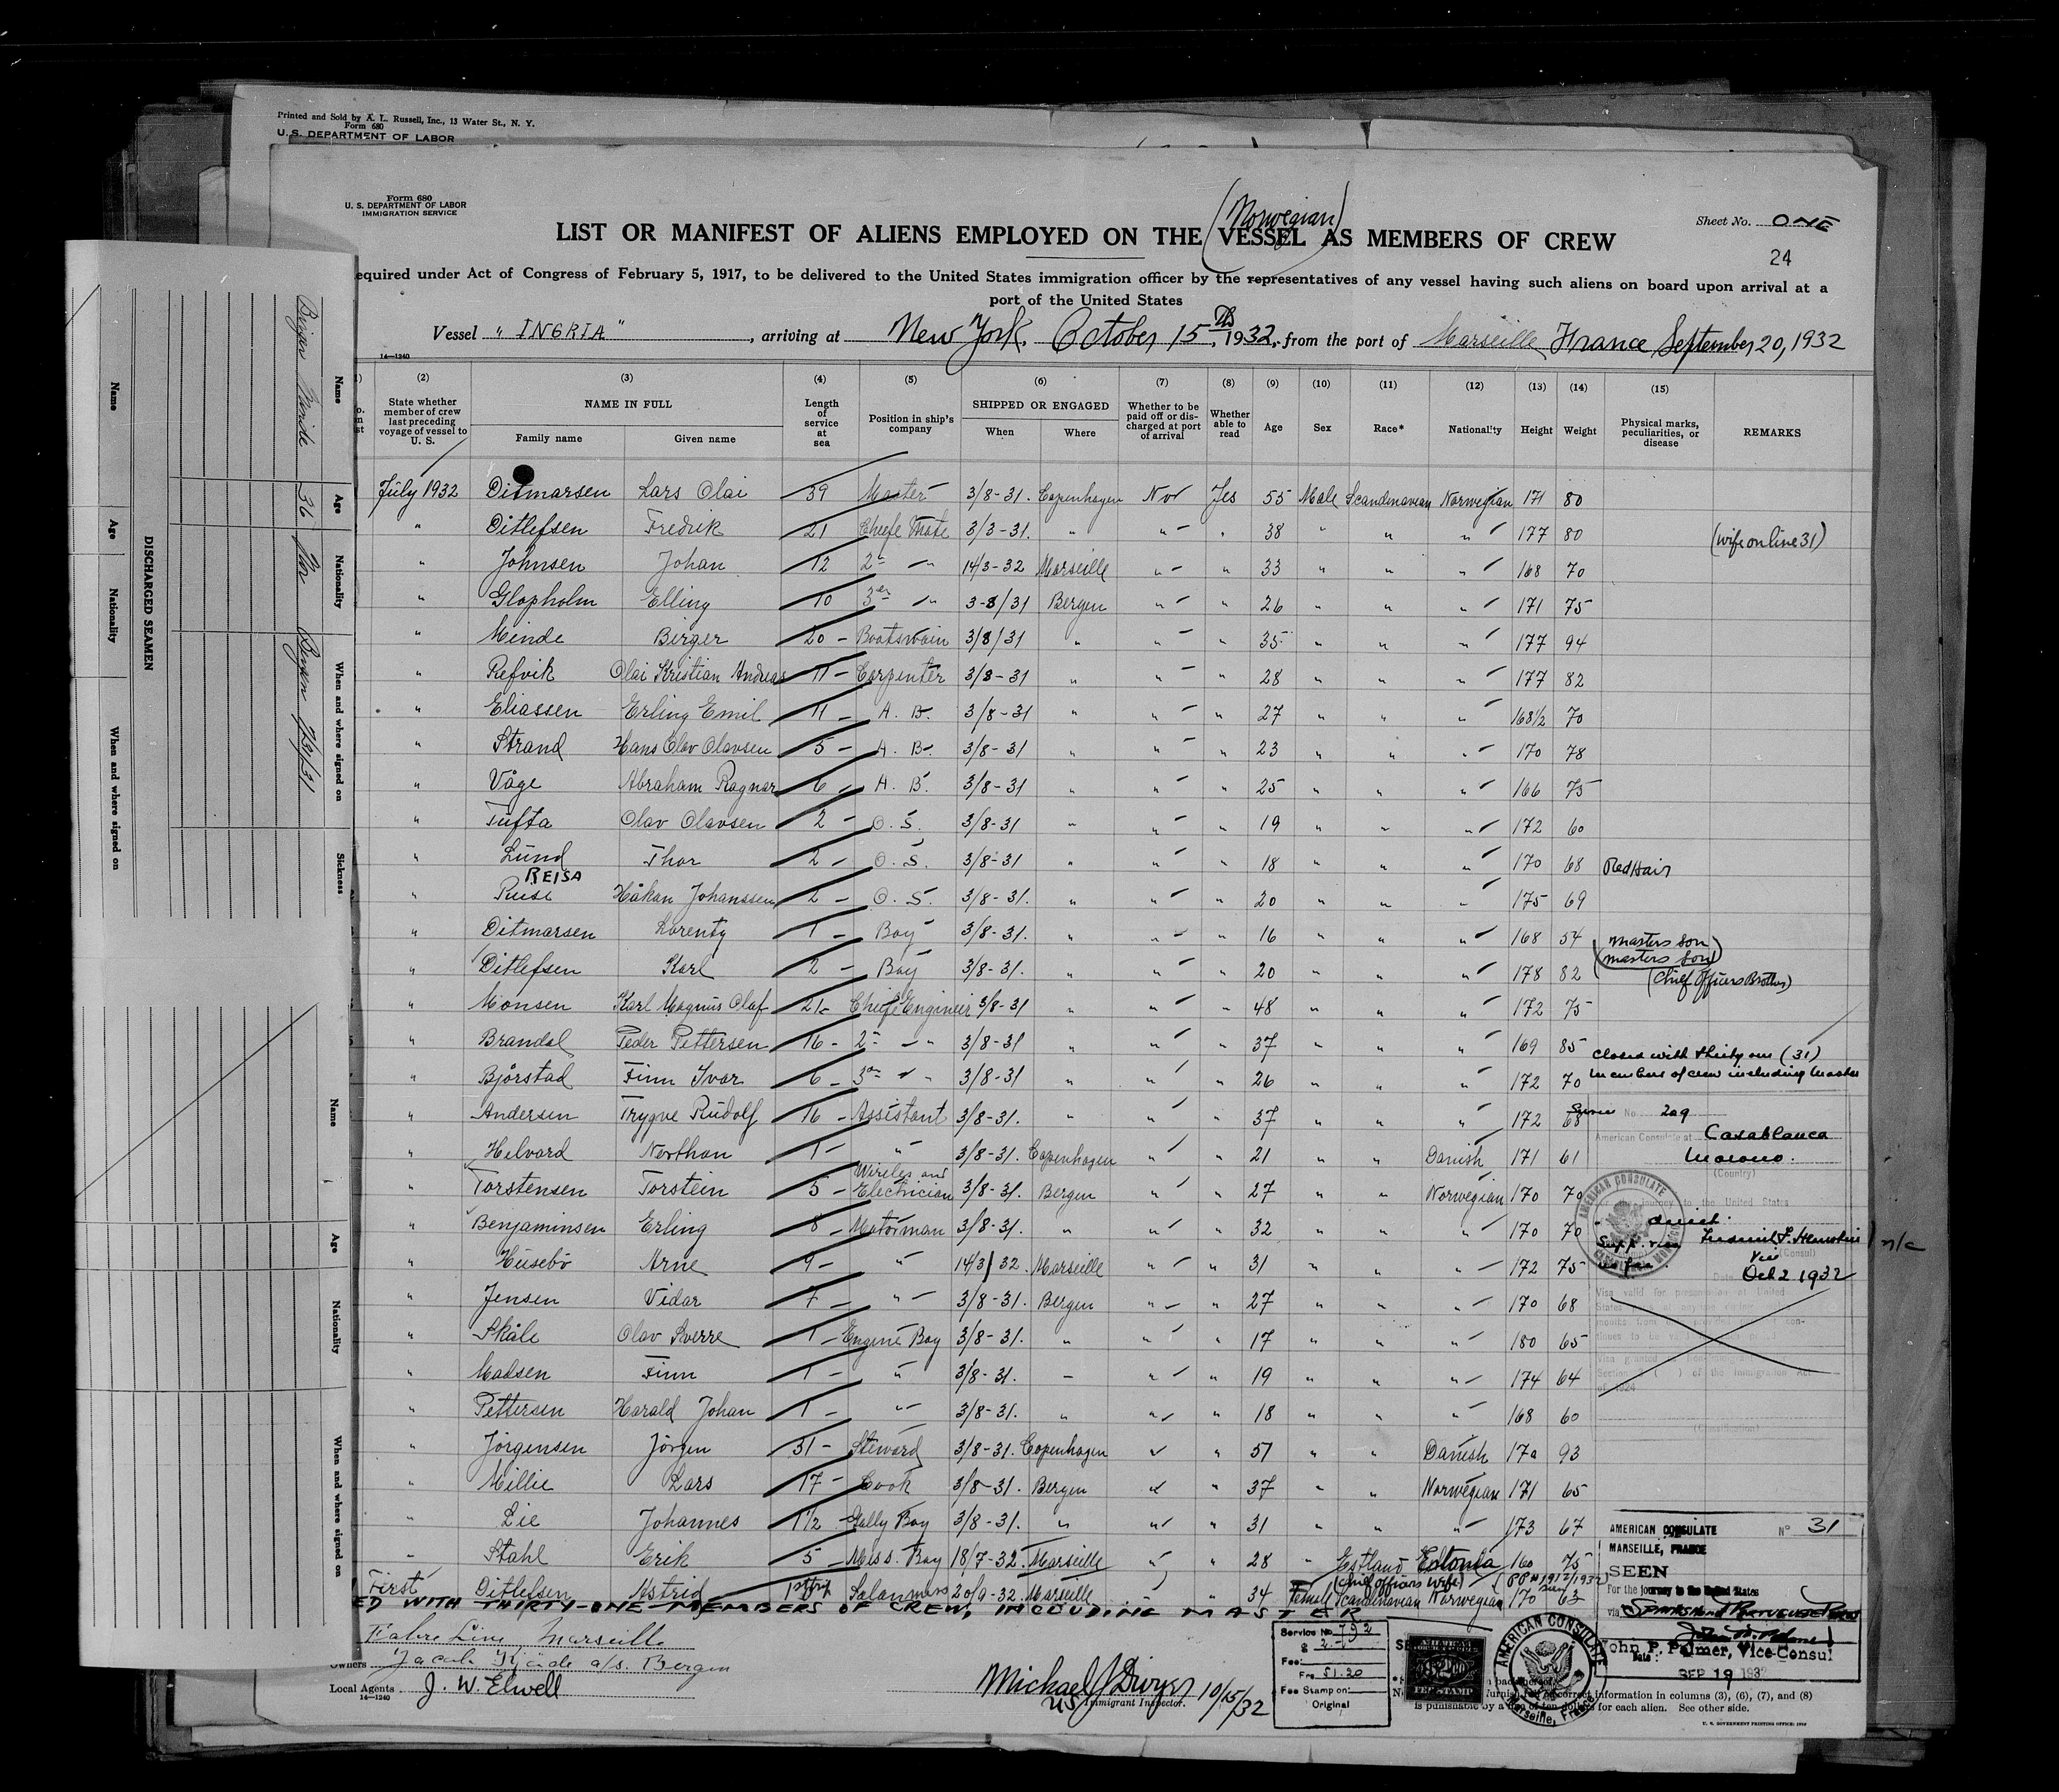 Printed and Sold by A. L. Russell, Inc., 13 Water St., N. Y.
Form 680
U. S. DEPARTMENT OF LABOR
Form 680
U. S. DEPARTMENT OF LABOR
IMMIGRATION SERVICE
Sheet No. ONE
24
(Norwegian)
LIST OR MANIFEST OF ALIENS EMPLOYED ON THE VESSEL AS MEMBERS OF CREW
equired under Act of Congress of February 5, 1917, to be delivered to the United States immigration officer by the representatives of any vessel having such aliens on board upon arrival at a
port of the United States
Vessel "INGRIA", arriving at New York, October 15th, 1932, from the port of Marseille France September 20, 1932
14—1240
(2) (3) (4) (5) (6) (7) (8) (9) (10) (11) (12) (13) (14) (15)
State whether member of crew last preceding voyage of vessel to U. S. NAME IN FULL Family name Given name Length of service at sea Position in ship's company SHIPPED OR ENGAGED When Where Whether to be paid off or discharged at port of arrival Whether able to read Age Sex Race* Nationality Height Weight Physical marks, peculiarities, or disease REMARKS
July 1932 Ditmarsen Lars Olai 39 Master 3/8-31. Copenhagen No Yes 55 Male Scandinavian Norwegian 171 80
" Ditlefsen Fredrik 21 Cheefe Mate 3/3-31. " " " 38 " " " 177 80 (wife on line 31)
" Johnsen Johan 12 2nd " 14/3-32 Marseille " " 33 " " " 168 70
" Glopholm Elling 10 3er " 3-8/31 Bergen " " 26 " " " 171 75
" Minde Birger 20 - Boatswain 3/8/31 " " " 35 " " " 177 94
" Refvik Olai Kristian Andreas 11 - Carpenter 3/8-31 " " " 28 " " " 177 82
" Eliassen Erling Emil 11 - A. B. 3/8-31 " " " 27 " " " 168½ 70
" Strand Hans Olav Olavsen 5 - A. B. 3/8-31 " " " 23 " " " 170 78
" Våge Abraham Ragnar 6 - A. B. 3/8-31 " " " 25 " " " 166 75
" Tufta Olav Olavsen 2 - O. S. 3/8-31 " " " 19 " " " 172 60
" Lund Thor 2 - O. S. 3/8-31 " " " 18 " " " 170 68 Red Hair
REISA
" Håkan Johanssen 2 - O. S. 3/8-31. " " " 20 " " " 175 69
" Ditmarsen Lorentz 1 - Boy 3/8-31. " " " 16 " " " 168 54 masters son
(masters son)
" Ditlefsen Karl 2 - Boy 3/8-31. " " " 20 " " " 178 82 (Chief Officers Brother)
" Monsen Karl Magnus Olaf 21- Cheefe Engineer 3/8-31 " " " 48 " " " 172 75
" Brandal Peder Pettersen 16 - 2nd " 3/8-31 " " " 37 " " " 169 85
closed with thirty one (31)
members of crew including master
" Bjørstad Finn Ivar 6 - 3er " 3/8-31 " " " 26 " " " 172 70
" Andersen Trygve Rudolf 16 - Assistant 3/8-31. " " " 37 " " " 172 68
" Helvard Northan 1 - " 3/8-31. Copenhagen " " 21 " " Danish 171 61
" Torstensen Torstein 5 - Wireles and Electrician 3/8-31. Bergen " " 27 " " Norwegian 170 70
" Benjaminsen Erling 8 - Motorman 3/8-31. " " " 32 " " " 170 70
" Husebö Arne 9 - " 14/3/32. Marseille " " 31 " " " 172 75
" Jensen Vidar 7 - " 3/8-31. Bergen " " 27 " " " 170 68
" Skåle Olav Sverre 1 - Engine Boy 3/8-31. " " " 17 " " " 180 65
" Madsen Finn 1 - " 3/8-31. - " " 19 " " " 174 64
" Pettersen Harald Johan 1 - " 3/8-31. " " " 18 " " " 168 60
" Jörgensen Jörgen 31 - Steward 3/8-31. Copenhagen " " 51 " " Danish 170 93
" Millie Lars 17 - Cook 3/8-31. Bergen " " 37 " " Norwegian 171 65
" Lie Johannes 1½ - Gally Boy 3/8-31. " " " 31 " " " 173 67
" Stahl Erik 5 - Mess. Boy 18/7-32. Marseille " " 28 " Estland Estonia 160 75
(chief officers wife)
First Ditlefsen Astrid 1st trip Salonmess 20/9-32. Marseille " 34 Female Scandinavian Norwegian 170 63
ED WITH THIRTY-ONE MEMBERS OF CREW, INCLUDING MASTER
Fabre Line, Marseille
Owners Jacob Kjöde a/s. Bergen
Local Agents J. W. Elwell
14—1240
Michael J Dwyer 10/15/32
US Immigrant Inspector.
Service No. 792
$ 2.-
Fee:
Frs 51.20
Fee Stamp on:
Original
furnish
information in columns (3), (6), (7), and (8)
is punishable by a fine of ten dollars for each alien. See other side.
U. S. GOVERNMENT PRINTING OFFICE
Service No. 209
American Consulate at Casablanca
Morocco.
(Country)
to the United States
direct.
Supp. visa
no fee
(Consul)
Vice
Oct 2 1932
n/c
AMERICAN CONSULATE
CASABLANCA MOROCCO
AMERICAN CONSULATE No 31
MARSEILLE, FRANCE
SEEN
For the journey to the United States
via Spanish and Portuguese Ports
John P. Palmer, Vice-Consul
Date: SEP 19 1932
AMERICAN CONSULATE
Marseille, France
FEE STAMP
DISCHARGED SEAMEN
Name Age Nationality When and where signed on Sickness
Birger Minde 36 Nor Bergen 3/8/31
Name Age Nationality When and where signed on
Name Age Nationality When and where signed on